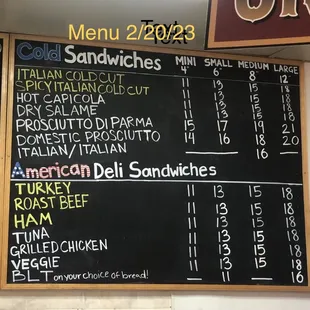 Menu 2/20/23
Text
Cold Sandwiches MINI SMALL MEDIUM LARGE
4" 6" 8" 12"
ITALIAN COLD CUT 11 13 15 18
SPICY ITALIAN COLD CUT 11 13 15 18
HOT CAPICOLA 11 13 15 18
DRY SALAME 11 13 15 18
PROSCIUTTO DI PARMA 15 17 19 21
DOMESTIC PROSCIUTTO 14 16 18 20
ITALIAN / ITALIAN 16
American Deli Sandwiches
TURKEY 11 13 15 18
ROAST BEEF 11 13 15 18
HAM 11 13 15 18
TUNA 11 13 15 18
GRILLED CHICKEN 11 13 15 18
VEGGIE 11 13 15 18
BLT on your choice of bread! 11 16